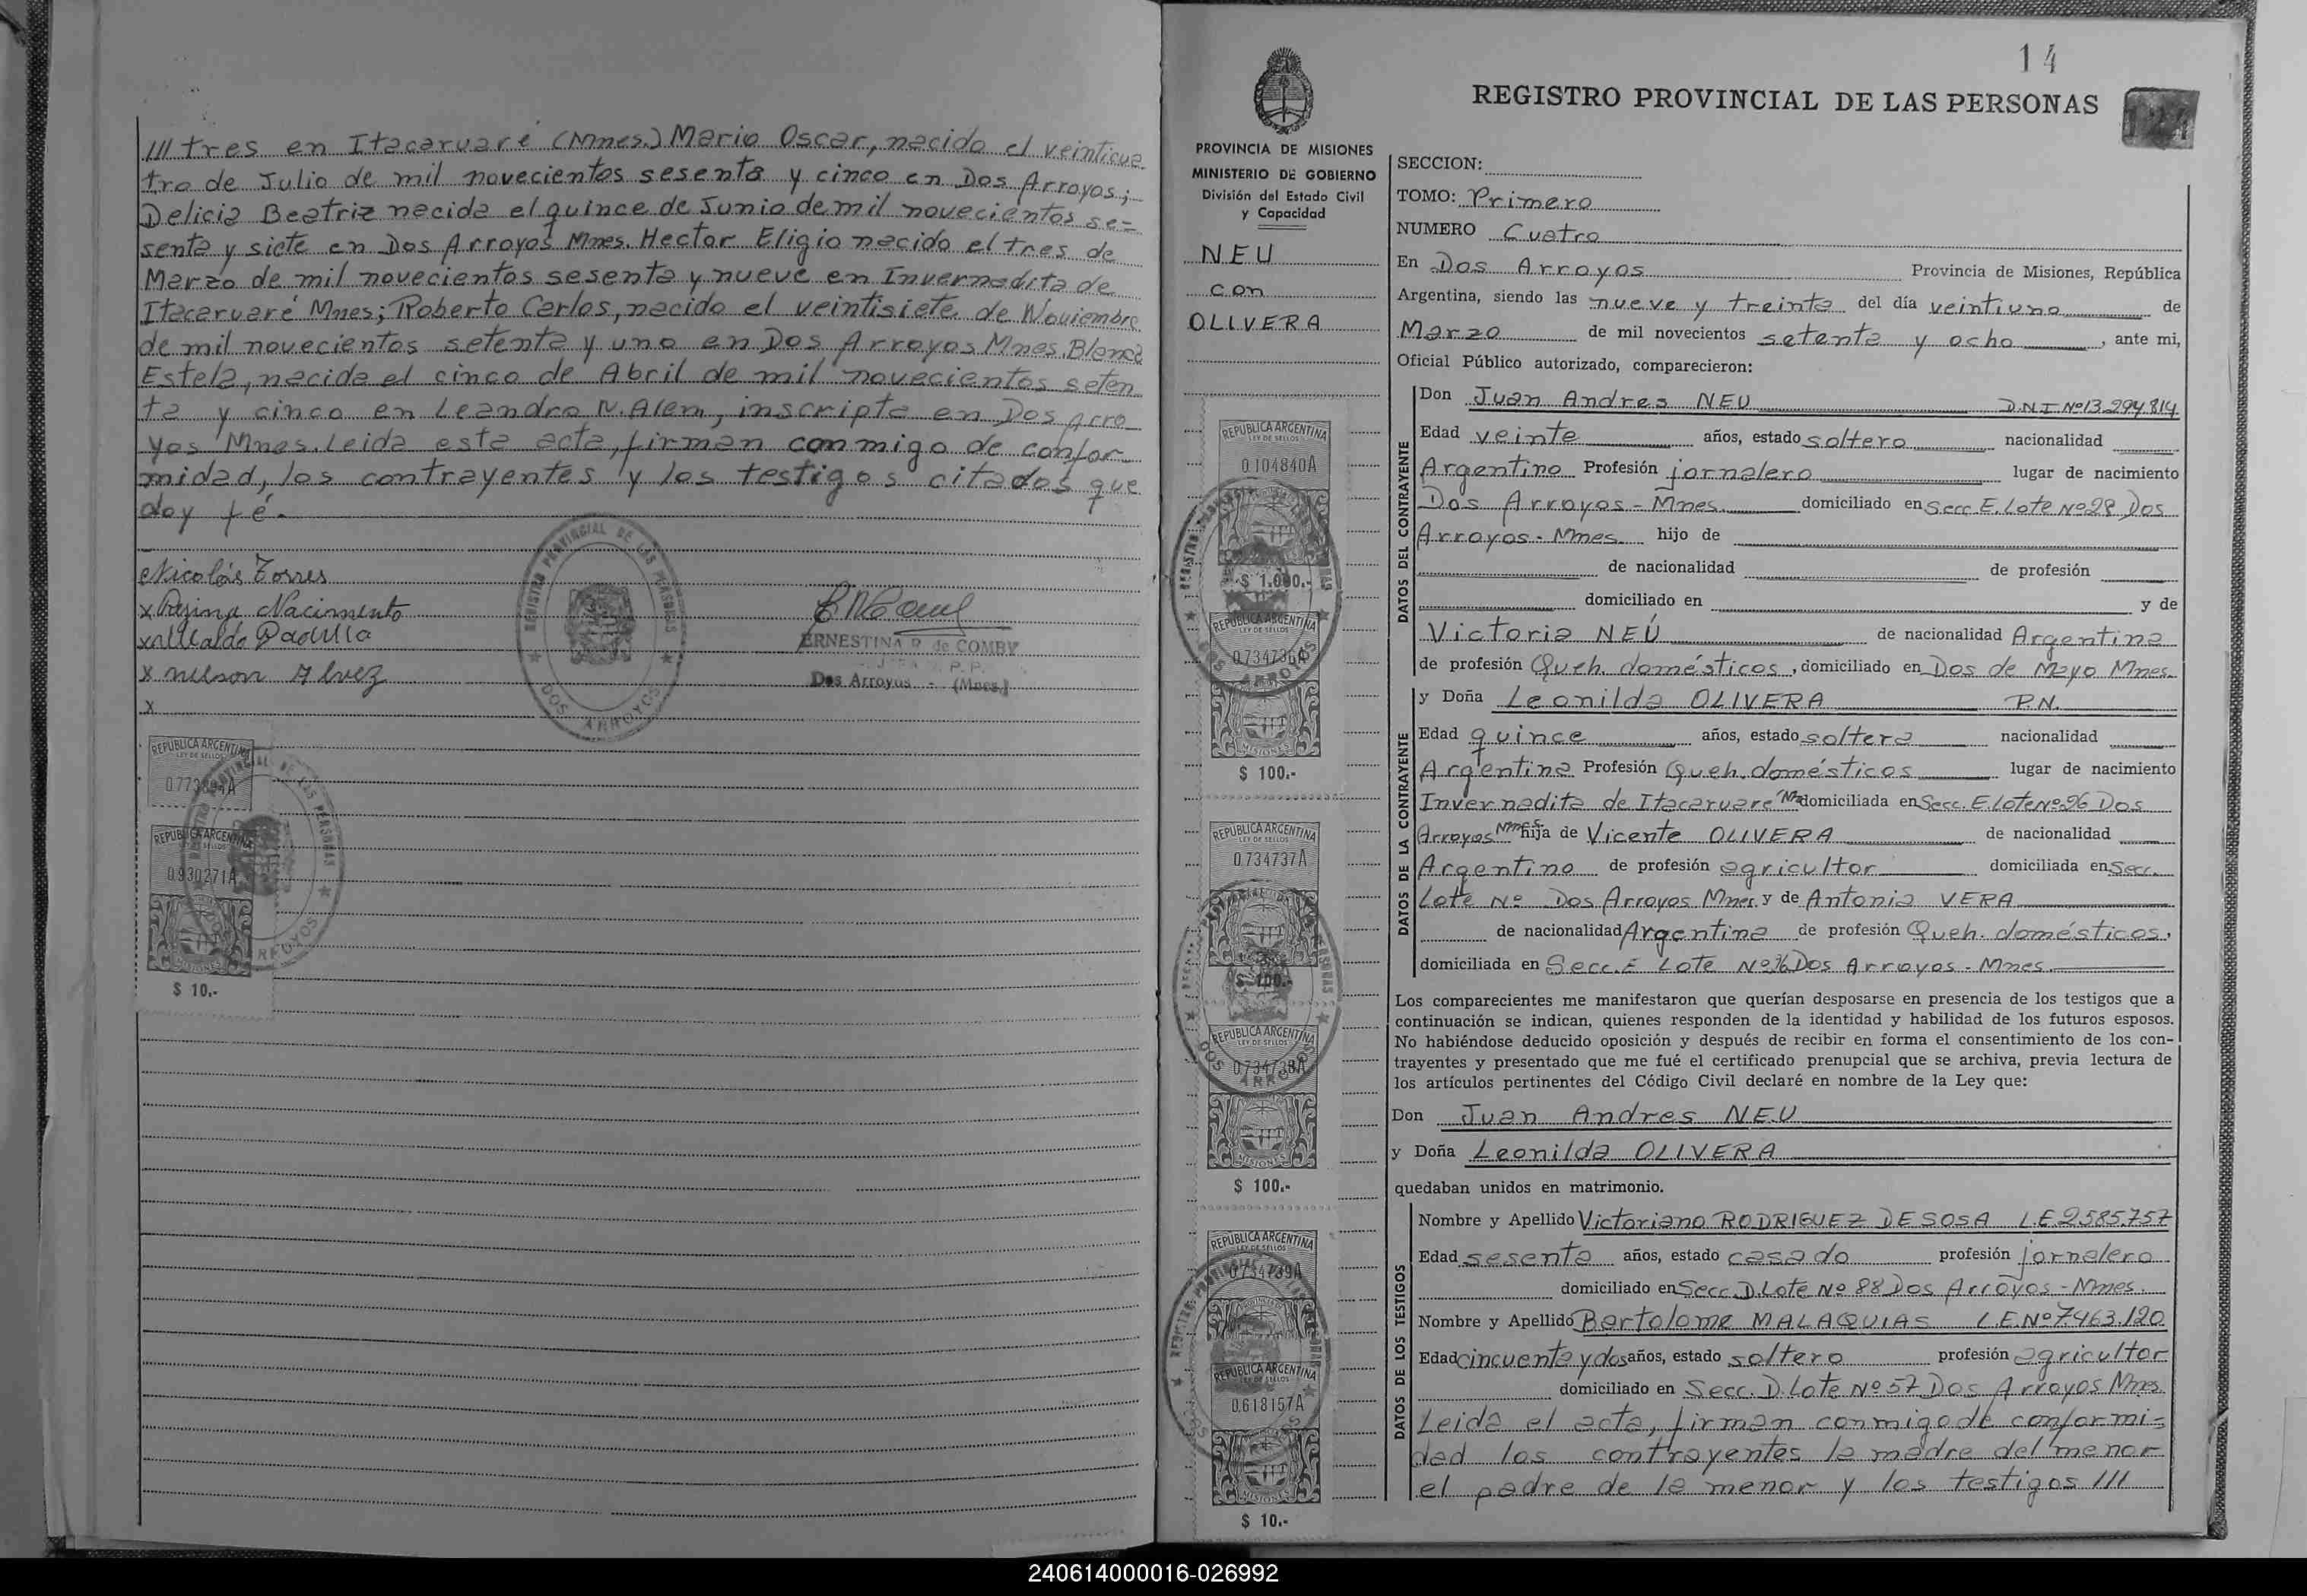 III tres en Itacaruaré (Mnes.) Mario Oscar, nacido el veinticua
tro de Julio de mil novecientos sesenta y cinco en Dos Arroyos;
Delicia Beatriz nacida el quince de Junio de mil novecientos se-
senta y siete en Dos Arroyos Mnes. Hector Eligio nacido el tres de
Marzo de mil novecientos sesenta y nueve en Invernadita de
Itacaruaré Mnes; Roberto Carlos, nacido el veintisiete de Noviembre
de mil novecientos setenta y uno en Dos Arroyos Mnes. Blanca
Estela, nacida el cinco de Abril de mil novecientos seten
ta y cinco en Leandro N. Alem, inscripta en Dos Arro
yos Mnes. Leida esta acta, firman conmigo de confor
midad, los contrayentes y los testigos citados que
doy fé.-
Nicolás Torres
x Regina Nacimento
x Padilla
x nelson Alvez
x
REGISTRO PROVINCIAL DE LAS PERSONAS
DOS ARROYOS
ERNESTINA R. de COMBY
Dos Arroyos - (Mnes.)
REPUBLICA ARGENTINA
LEY DE SELLOS
REPUBLICA ARGENTINA
LEY DE SELLOS
0930271A
MISIONES
$ 10.-
14
REGISTRO PROVINCIAL DE LAS PERSONAS
PROVINCIA DE MISIONES
MINISTERIO DE GOBIERNO
División del Estado Civil
y Capacidad
NEU
con
OLIVERA
REPUBLICA ARGENTINA
LEY DE SELLOS
0104840A
$ 1.000.-
REPUBLICA ARGENTINA
LEY DE SELLOS
0734736A
MISIONES
$ 100.-
REPUBLICA ARGENTINA
LEY DE SELLOS
0734737A
$ 100.-
REPUBLICA ARGENTINA
LEY DE SELLOS
0734738A
MISIONES
$ 100.-
REPUBLICA ARGENTINA
LEY DE SELLOS
0734739A
REPUBLICA ARGENTINA
LEY DE SELLOS
0618157A
MISIONES
$ 10.-
SECCION:
TOMO: Primero
NUMERO Cuatro
En Dos Arroyos Provincia de Misiones, República
Argentina, siendo las nueve y treinta del día veintiuno de
Marzo de mil novecientos setenta y ocho, ante mi,
Oficial Público autorizado, comparecieron:
DATOS DEL CONTRAYENTE
Don Juan Andres NEU D.N.I Nº13.294.814
Edad veinte años, estado soltero nacionalidad
Argentino Profesión jornalero lugar de nacimiento
Dos Arroyos - Mnes. domiciliado en Secc E. Lote Nº28 Dos
Arroyos - Mnes. hijo de
de nacionalidad de profesión
domiciliado en y de
Victoria NEÚ de nacionalidad Argentina
de profesión Queh. domésticos, domiciliado en Dos de Mayo Mnes.
y Doña Leonilda OLIVERA P.N.
DATOS DE LA CONTRAYENTE
Edad quince años, estado soltera nacionalidad
Argentina Profesión Queh. domésticos lugar de nacimiento
Invernadita de Itacaruare Ms domiciliada en Secc. E. Lote Nº26 Dos
Arroyos Mnes hija de Vicente OLIVERA de nacionalidad
Argentino de profesión agricultor domiciliada en Secc.
Lote Nº Dos Arroyos Mnes. y de Antonia VERA
de nacionalidad Argentina de profesión Queh. domésticos,
domiciliada en Secc. E Lote Nº26 Dos Arroyos - Mnes.
Los comparecientes me manifestaron que querían desposarse en presencia de los testigos que a
continuación se indican, quienes responden de la identidad y habilidad de los futuros esposos.
No habiéndose deducido oposición y después de recibir en forma el consentimiento de los con-
trayentes y presentado que me fué el certificado prenupcial que se archiva, previa lectura de
los artículos pertinentes del Código Civil declaré en nombre de la Ley que:
Don Juan Andres NEU
y Doña Leonilda OLIVERA
quedaban unidos en matrimonio.
DATOS DE LOS TESTIGOS
Nombre y Apellido Victoriano RODRIGUEZ DE SOSA L.E 2585.757
Edad sesenta años, estado casado profesión jornalero
domiciliado en Secc. D. Lote Nº 88 Dos Arroyos - Mnes.
Nombre y Apellido Bartolome MALAQUIAS L.E.Nº7463.120
Edad cincuenta y dos años, estado soltero profesión agricultor
domiciliado en Secc. D. Lote Nº 57 Dos Arroyos Mnes.
Leida el acta, firman conmigo de conformi-
dad los contrayentes la madre del menor
el padre de la menor y los testigos III
240614000016-026992